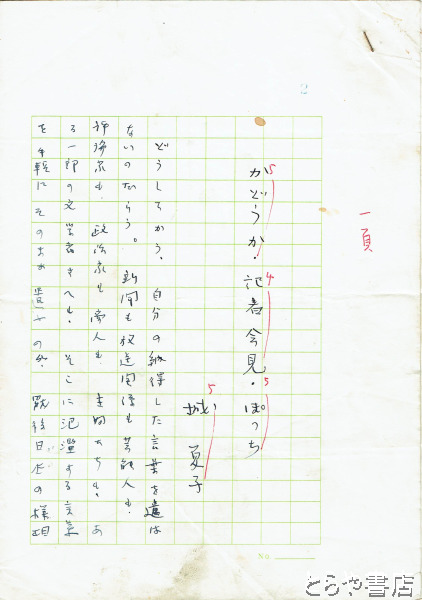 一頁
5 4 5
かどうか・記者会見・ぽっち
5
城 夏子
どうしてかう、自分の納得した言葉を遣は
ないのだらう。新聞も放送関係も芸能人も、
評論家も、政治家も商人も、主婦たちも、あ
る一部の文学者さへも、そこに氾濫する言葉
を手軽にそのまま
戦後日本の様相
No
とらや書店